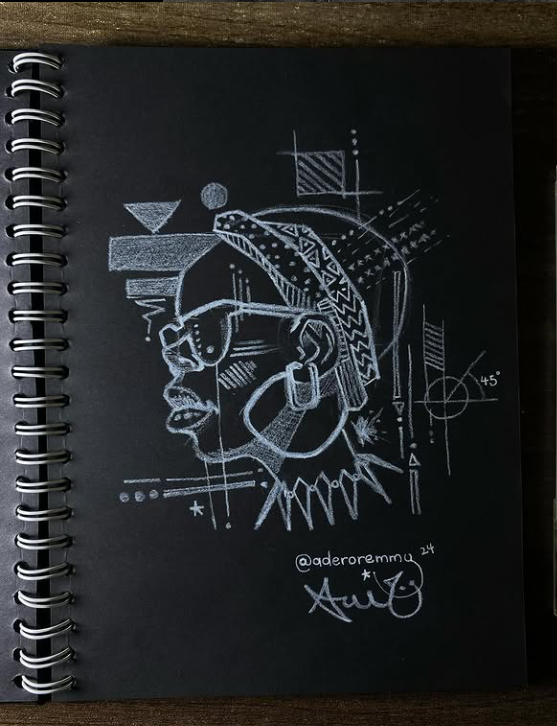 45°
@aderoremmy 24